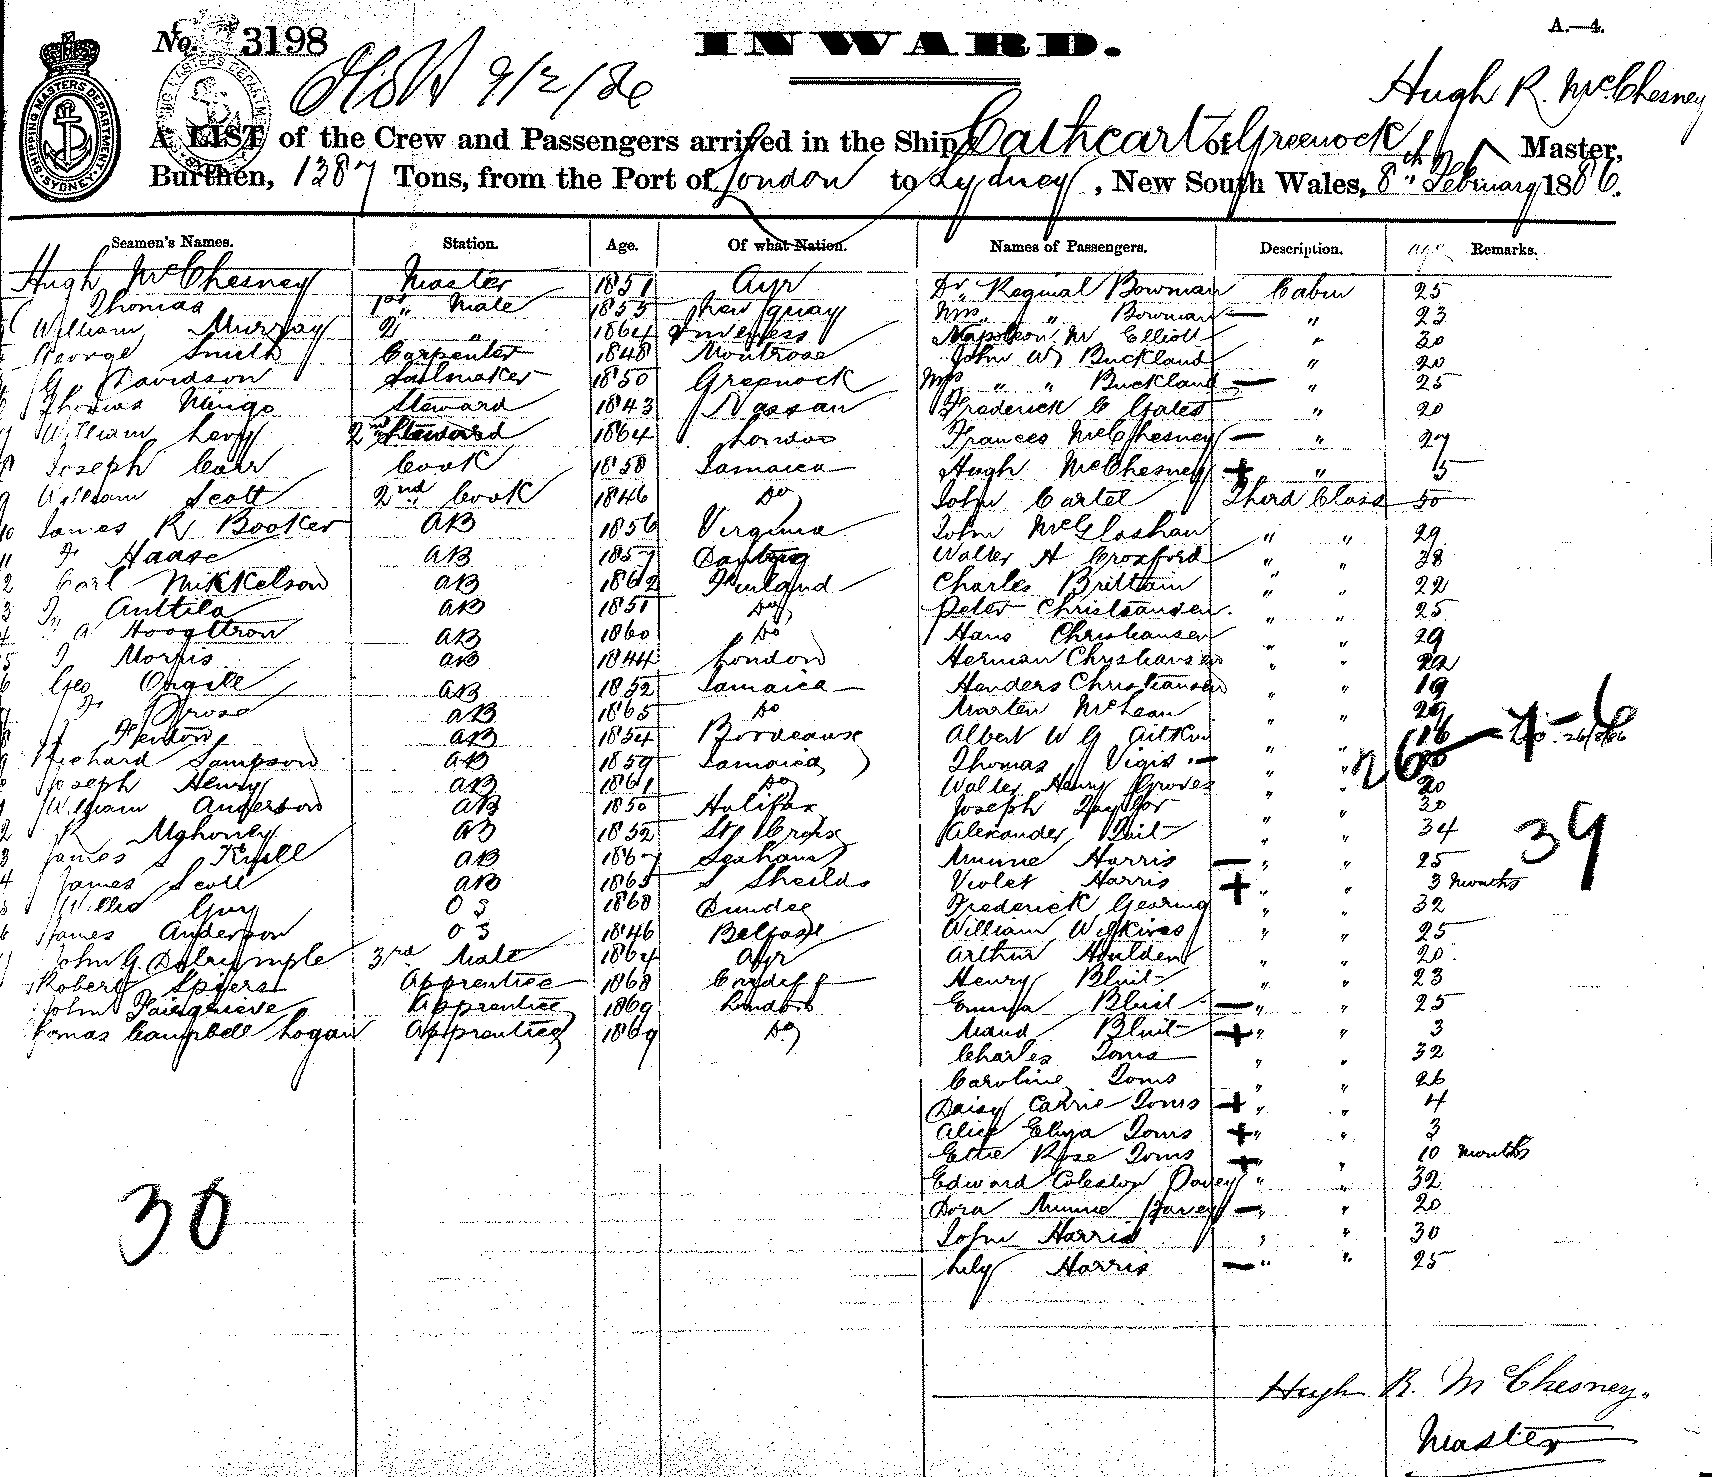 No. 3198
INWARD.
A.—4.
9/2/86
Hugh R. McChesney
SHIPPING MASTERS DEPARTMENT SYDNEY
A LIST of the Crew and Passengers arrived in the Ship Cathcart of Greenock, Master,
Burthen, 1387 Tons, from the Port of London to Sydney, New South Wales, 8th February 1886.
Seamen's Names. Station. Age. Of what Nation. Names of Passengers. Description. age Remarks.
Hugh McChesney Master 1851 Ayr Dr. Reginal Bowman Cabin 25
Thomas 1st " Mate 1855 New quay Mrs. " Bowman — " 23
William Murray 2 " 1864 Inverness Napoleon M Elliott " 20
George Smith Carpenter 1848 Montrose John W Buckland " 20
G Davidson Sailmaker 1850 Greenock Mrs " " Buckland — " 25
Thomas Mingo Steward 1843 Nassau Frederick C Gates " 20
William Levy 2nd Steward 1864 London Frances McChesney — " 27
Joseph Carr Cook 1858 Jamaica Hugh McChesney + " 5
William Scott 2nd Cook 1846 Do John Cartel Third Class 50
James R Booker AB 1856 Virginia John McGlashan " " 29
F Haase AB 1857 Dantzig Walter H Croxford " " 38
Carl Mikkelson AB 1862 Finland Charles Brittain " " 22
Anttila AB 1851 Do Peter Christiansen " " 25
A Hoogttron AB 1860 Do Hans Christiansen " " 29
Morris AB 1844 London Herman Christiansen " " 22
Geo Orgill AB 1852 Jamaica Handers Christiansen " " 19
Grose AB 1865 Do Marten McLean " " 29
Fendon AB 1854 Bordeaux Albert W G Aitken " " 18
Richard Sampson AB 1859 Jamaica Thomas Vigis — " " 26
Joseph Henry AB 1861 Do Walter Henry Groves " " 20
William Anderson AB 1850 Halifax Joseph Taylor " " 30
Mahoney AB 1852 St Croix Alexander " " 34
39
James S Kyell AB 1867 Seaham Minnie Harris — " " 25
James Scott AB 1865 S Sheilds Violet Harris + " " 3 months
Willis Guy OS 1868 Dundee Frederick Gearing " " 32
James Anderson OS 1846 Belfast William Wilkins " " 25
John G Dalrymple 3rd Mate 1864 Ayr Arthur Houlden " " 20
Robert Spiers Apprentice 1868 Cardiff Henry Bluit " " 23
John Fairgrieve Apprentice 1869 London Emma Bluit — " " 25
Thomas Campbell Logan Apprentice 1869 Do Maud Bluit + " " 3
Charles Toms " " 32
Caroline Toms " " 26
Daisy Carrie Toms + " " 4
Alice Eliza Toms + " " 3
Ettie Rose Toms + " " 10 months
Edward Coleston Davey " " 32
Dora Minnie Davey — " " 20
30
John Harris " " 30
Lily Harris — " " 25
Hugh R. McChesney.
Master